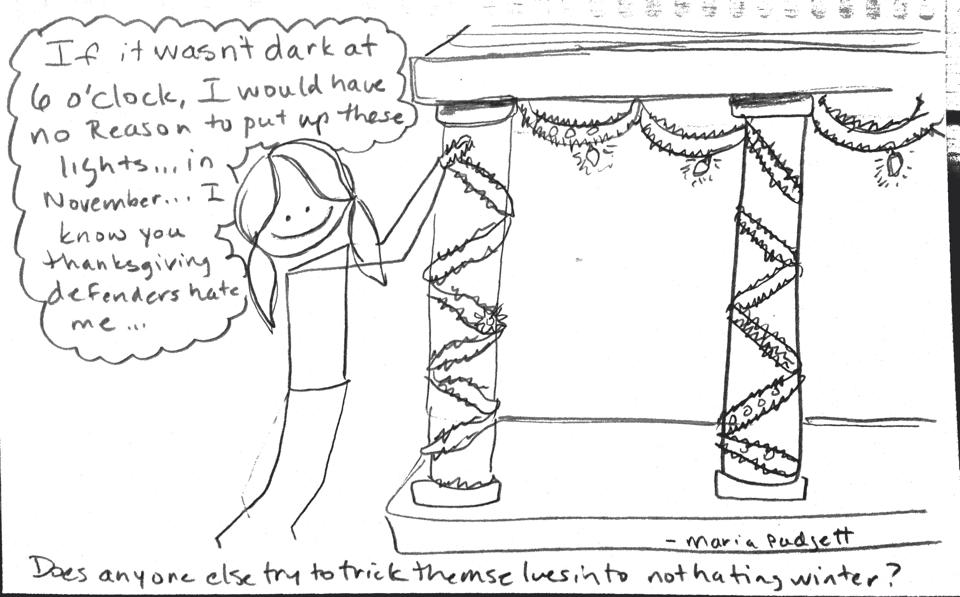 If it wasn't dark at
6 o'clock, I would have
no Reason to put up these
lights... in
November... I
know you
thanksgiving
defenders hate
me...
- maria padgett
Does anyone else try to trick themselves into not hating winter?